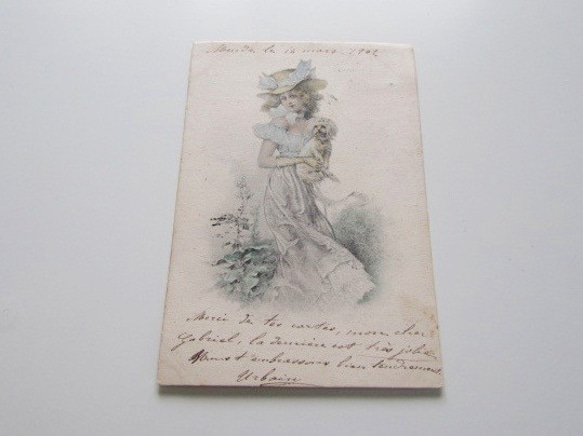 le 12 mars 1902
Merci de tes cartes, mon cher
Gabriel, la dernière est très jolie
embrassons bien tendrement
Urbain